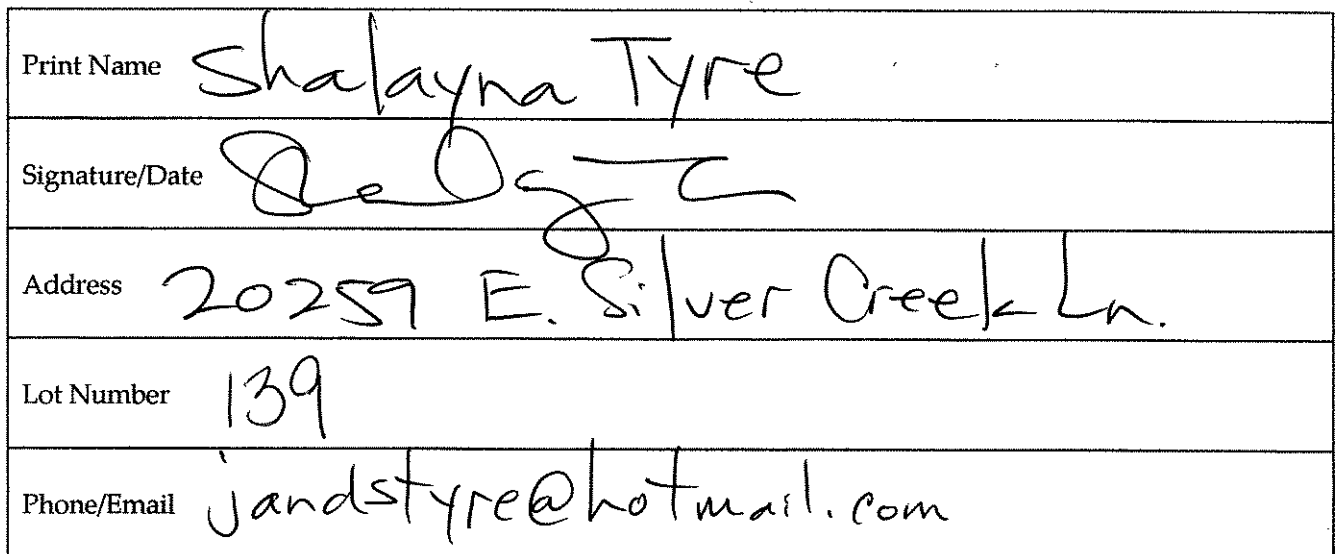 Print Name Shalayna Tyre
Signature/Date
Address 20259 E. Silver Creek Ln.
Lot Number 139
Phone/Email jandstyre@hotmail.com